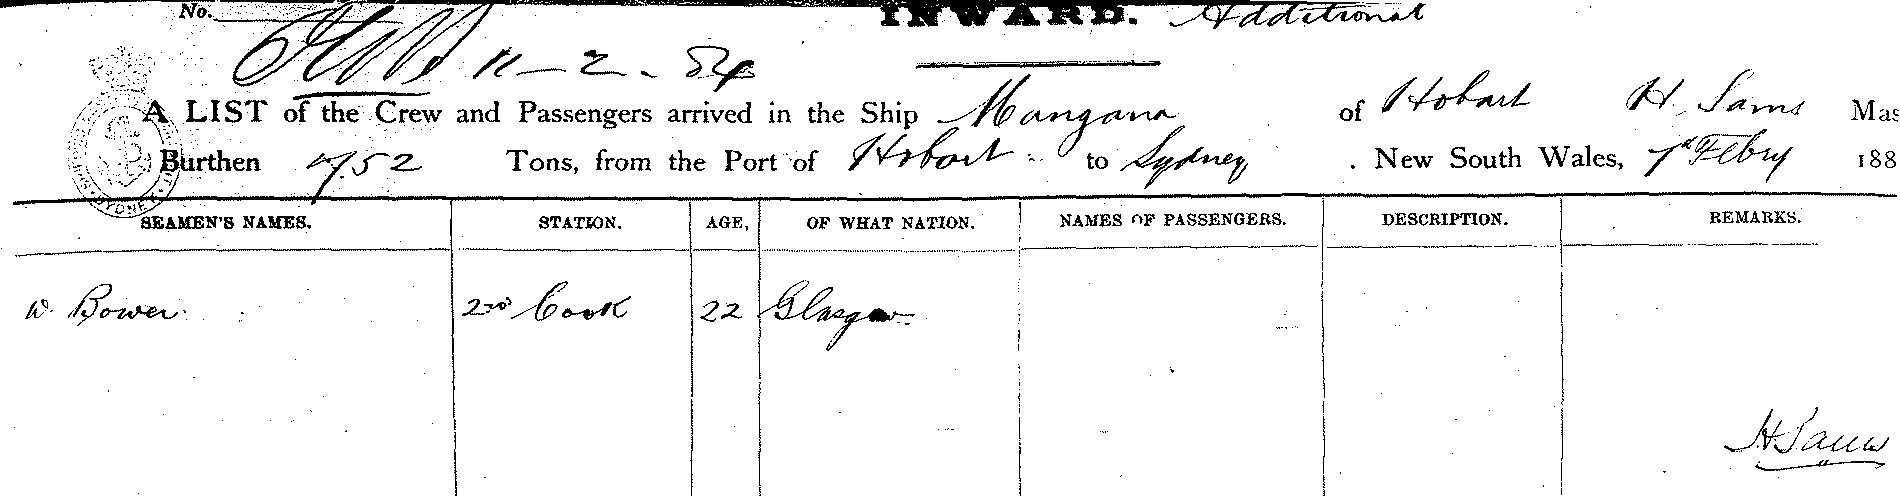 No. INWARD. Additional
11-2-84
A LIST of the Crew and Passengers arrived in the Ship Mangana of Hobart H. Sams Mas
Burthen 752 Tons, from the Port of Hobart to Sydney. New South Wales, 7th Febry 188
SEAMEN'S NAMES. STATION. AGE, OF WHAT NATION. NAMES OF PASSENGERS. DESCRIPTION. REMARKS.
W. Bower 2nd Cook 22 Glasgow
H Sams